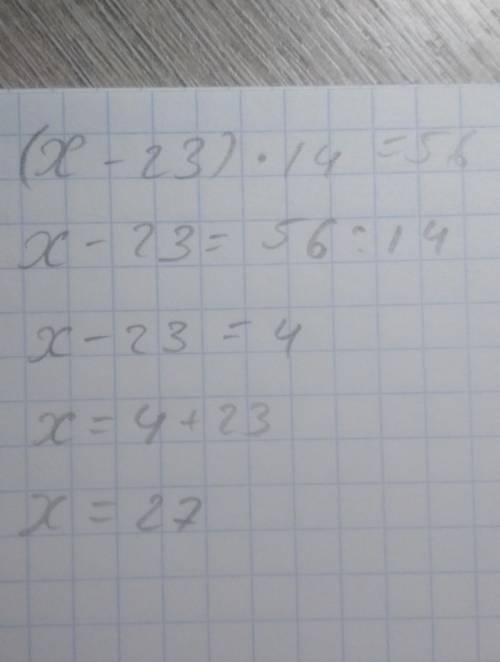 (x - 23) · 14 = 56
x - 23 = 56 : 14
x - 23 = 4
x = 4 + 23
x = 27